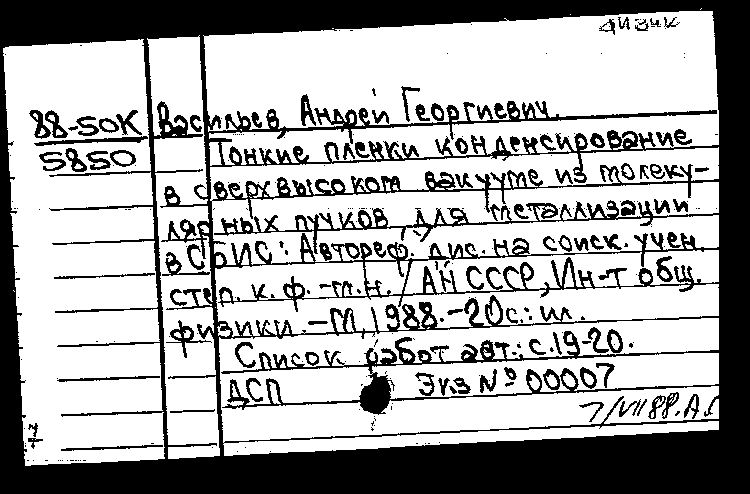 физик
88-50К
5850
Васильев, Андрей Георгиевич.
Тонкие пленки конденсирование
в сверхвысоком вакууме из молеку-
лярных пучков, для металлизации
в СБИС: Автореф. дис. на соиск. учен.
степ. к. ф. -м.н. / АН СССР, Ин-т общ.
физики. -М, 1988. -20с.: ил.
Список работ авт.: с.19-20.
ДСП Экз № 00007
7/VII 88.